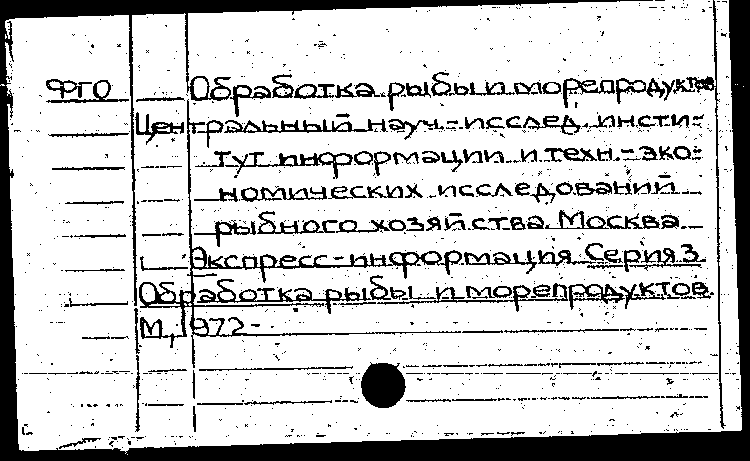 ФГО Обработка рыбы и морепродуктов
Центральный науч.-исслед. инсти-
тут информации и техн.-эко-
номических исследований
рыбного хозяйства. Москва
Экспресс-информация. Серия 3.
Обработка рыбы и морепродуктов.
М., 1972-